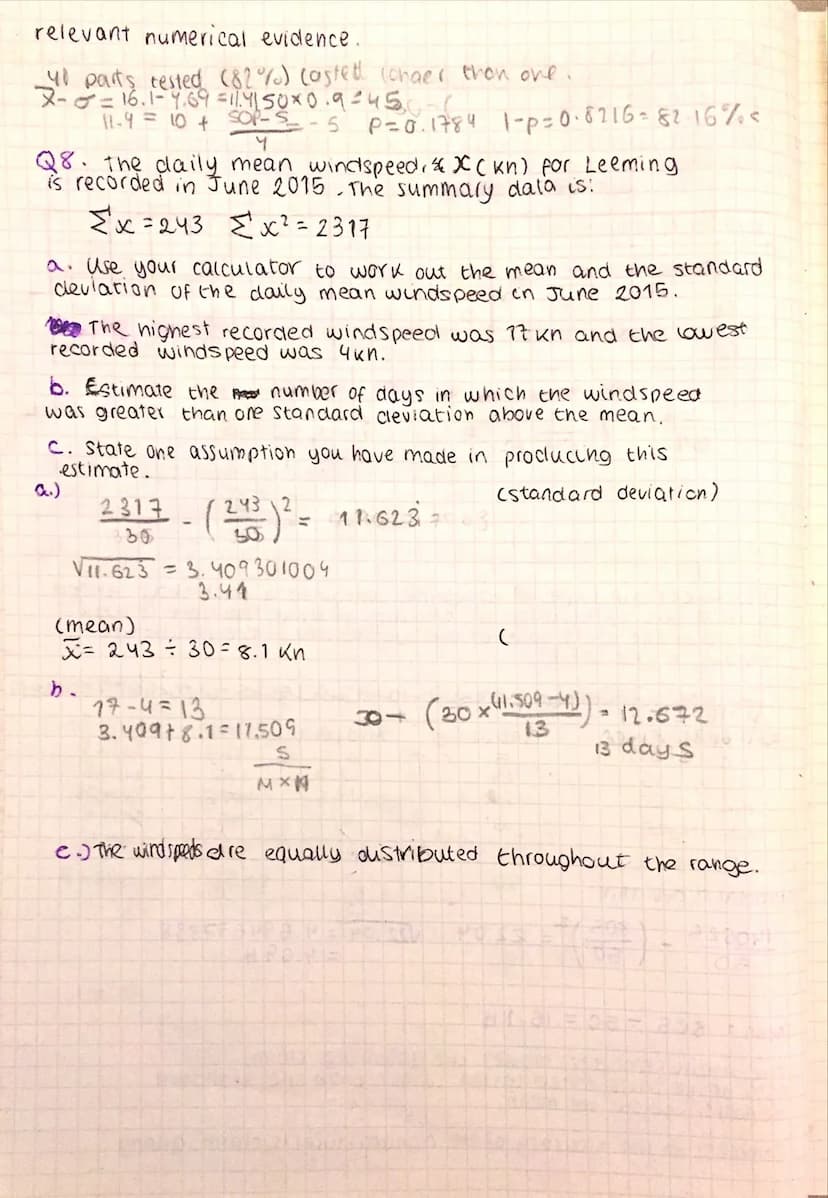 relevant numerical evidence.
41 parts tested (82%) lasted longer than one.
x̄ - σ = 16.1 - 4.69 = 11.41 50 x 0.9 = 45
11.4 = 10 + 50P - 5 / 4 - 5 P = 0.1784 1-p = 0.8216 = 82.16%
Q8. The daily mean windspeed, x (kn) for Leeming
is recorded in June 2015. The summary data is:
Σx = 243 Σx² = 2317
a. Use your calculator to work out the mean and the standard
deviation of the daily mean windspeed in June 2015.
The highest recorded windspeed was 17 kn and the lowest
recorded windspeed was 4kn.
b. Estimate the number of days in which the windspeed
was greater than one standard deviation above the mean.
c. State one assumption you have made in producing this
estimate.
a.) (standard deviation)
2317/30 - (243/30)² = 11.623̇ =
√11.623̇ = 3.409301004
3.41
(mean) (
x̄ = 243 ÷ 30 = 8.1 Kn
b.
17-4 = 13
3.409 + 8.1 = 11.509
30 - (30 x (11.509-4)/13) = 12.672
13 days
S
M x
c.) The windspeeds are equally distributed throughout the range.